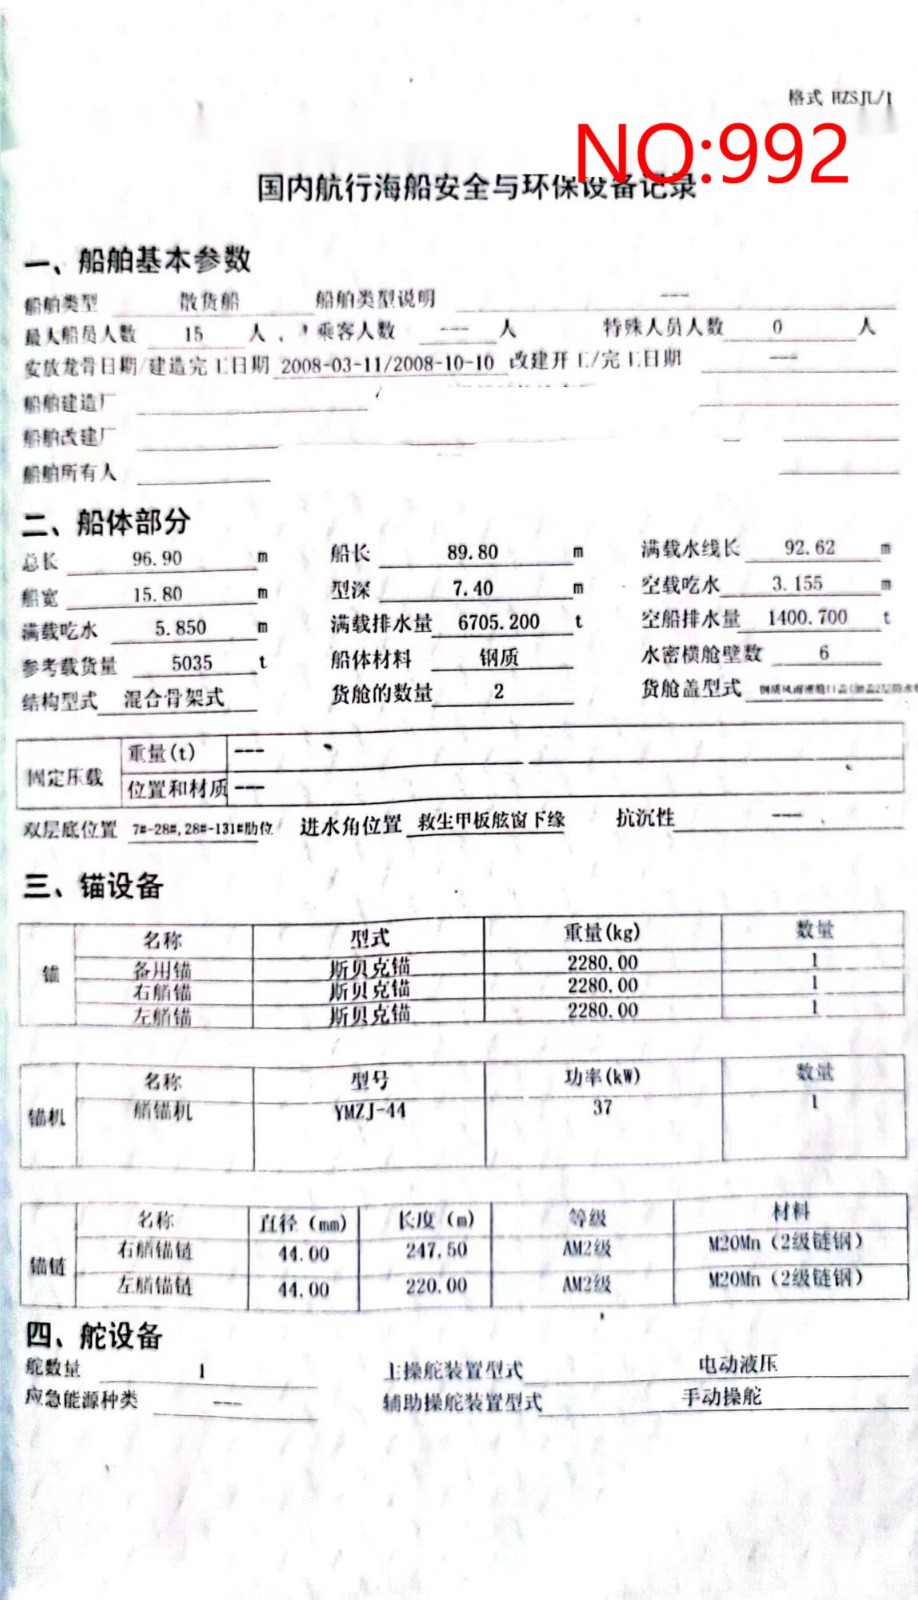 格式 HZSJL/1
NO:992
国内航行海船安全与环保设备记录
一、船舶基本参数
船舶类型 散货船 船舶类型说明 ---
最大船员人数 15 人 , 乘客人数 --- 人 特殊人员人数 0 人
安放龙骨日期/建造完工日期 2008-03-11/2008-10-10 改建开工/完工日期 ---
船舶建造厂
船舶改建厂
船舶所有人
二、船体部分
总长 96.90 m 船长 89.80 m 满载水线长 92.62 m
船宽 15.80 m 型深 7.40 m 空载吃水 3.155 m
满载吃水 5.850 m 满载排水量 6705.200 t 空船排水量 1400.700 t
参考载货量 5035 t 船体材料 钢质 水密横舱壁数 6
结构型式 混合骨架式 货舱的数量 2 货舱盖型式
固定压载 重量(t) ---
位置和材质 ---
双层底位置 7#-28#,28#-131#肋位 进水角位置 救生甲板舷窗下缘 抗沉性 ---
三、锚设备
锚 名称 型式 重量(kg) 数量
备用锚 斯贝克锚 2280.00 1
右艏锚 斯贝克锚 2280.00 1
左艏锚 斯贝克锚 2280.00 1
锚机 名称 型号 功率(kW) 数量
艏锚机 YMZJ-44 37 1
锚链 名称 直径（mm） 长度（m） 等级 材料
右艏锚链 44.00 247.50 AM2级 M20Mn（2级链钢）
左艏锚链 44.00 220.00 AM2级 M20Mn（2级链钢）
四、舵设备
舵数量 1 主操舵装置型式 电动液压
应急能源种类 --- 辅助操舵装置型式 手动操舵